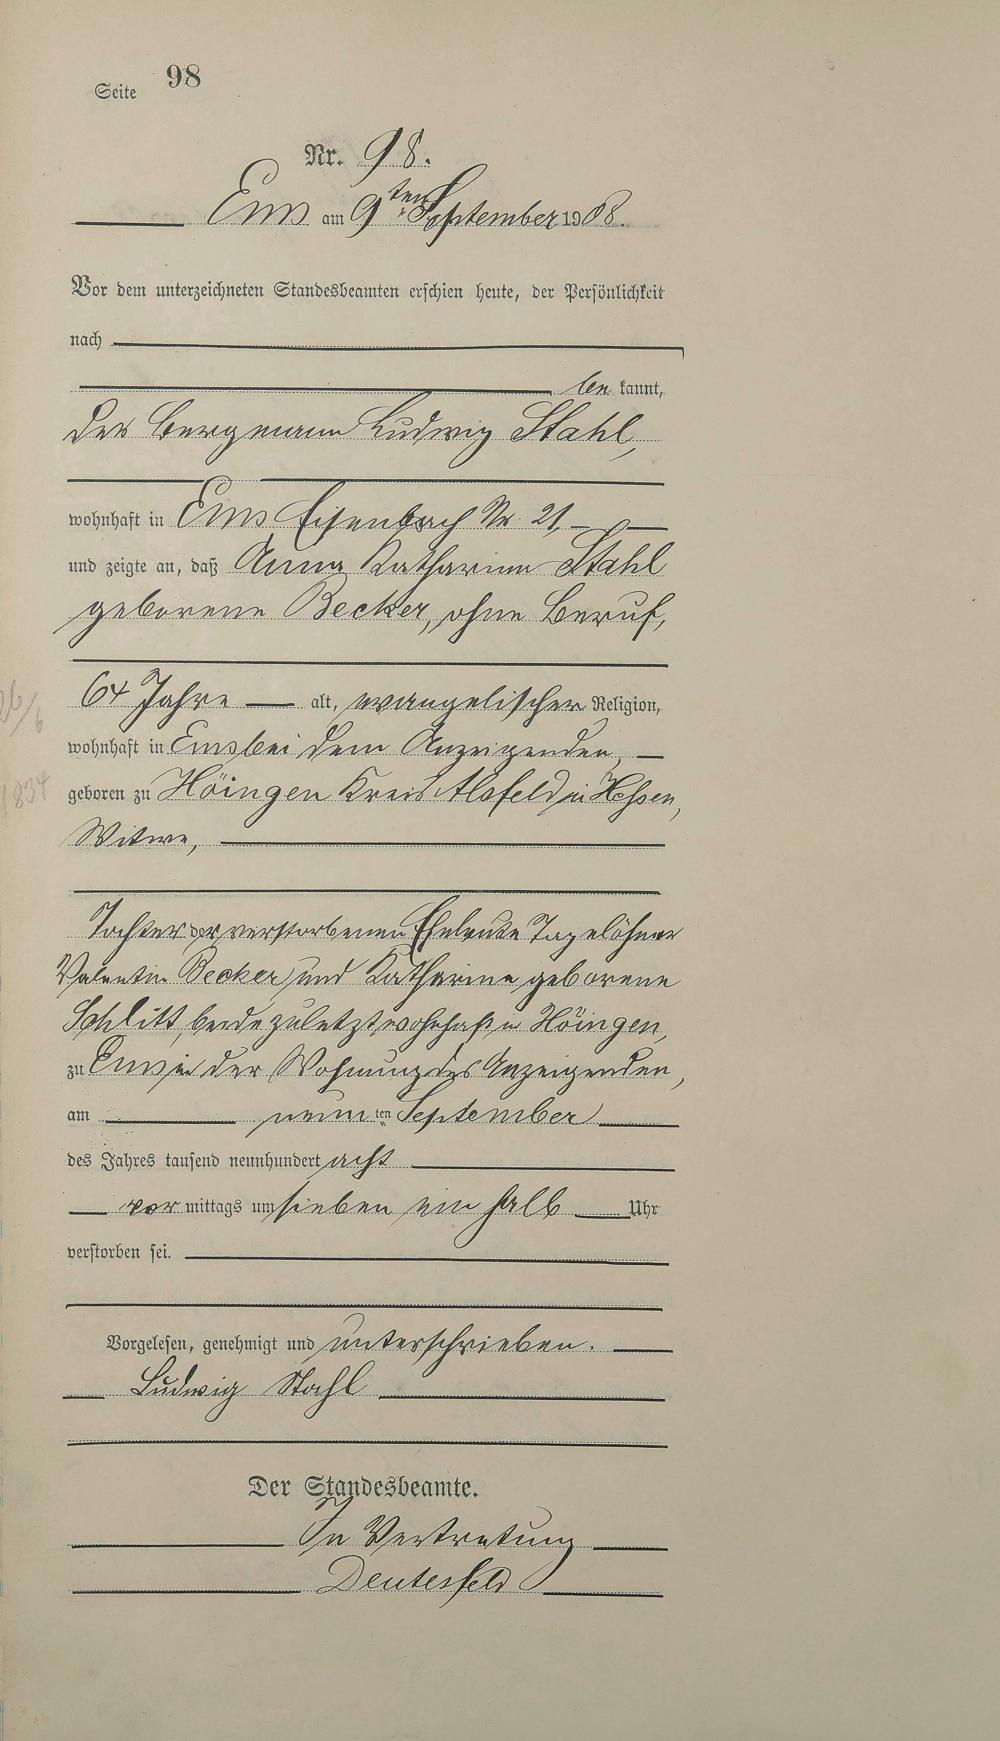 Seite 98
Nr. 98.
Ems am 9ten September 1908.
Vor dem unterzeichneten Standesbeamten erschien heute, der Persönlichkeit
nach
be kannt,
der Bergmann Ludwig Stahl,
wohnhaft in Ems Eisenbach Nr. 21,
und zeigte an, daß Anna Katharina Stahl
geborene Becker, ohne Beruf,
64 Jahre alt, evangelischer Religion,
wohnhaft in Ems bei dem Anzeigenden,
geboren zu Höingen Kreis Alsfeld in Hessen,
Witwe,
Tochter der verstorbenen Eheleute Tagelöhner
Valentin Becker und Katharine geborene
Schlitt, beide zuletzt wohnhaft in Höingen,
zu Ems in der Wohnung des Anzeigenden,
am neunten September
des Jahres tausend neunhundert acht
vor mittags um sieben ein halb Uhr
verstorben sei.
Vorgelesen, genehmigt und unterschrieben.
Ludwig Stahl
Der Standesbeamte.
In Vertretung